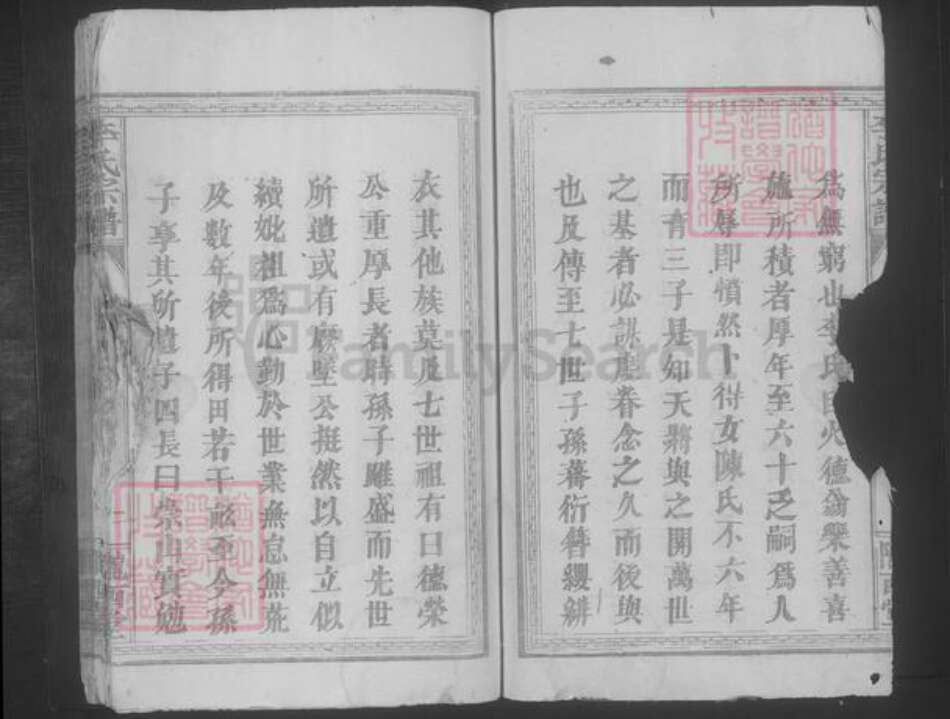 為無窮也李氏
火德翁樂善喜
施所積者厚年至六十乏嗣為人
所辱即憤然卜得女陳氏不六年
而育三子是知天將與之開萬世
之基者必謀聖眷念之久而後與
也及傳至七世子孫蕃衍簪纓
李氏宗譜
衣其他族莫及七世祖有曰德榮
公重厚長者時孫子雖盛而先世
所遺或有廢墜公挺然以自立似
續妣祖為心勤於世業無怠無荒
及數年後所得田若干畝至今孫
子享其所遺子四長曰崇山
李氏宗譜
FamilySearch